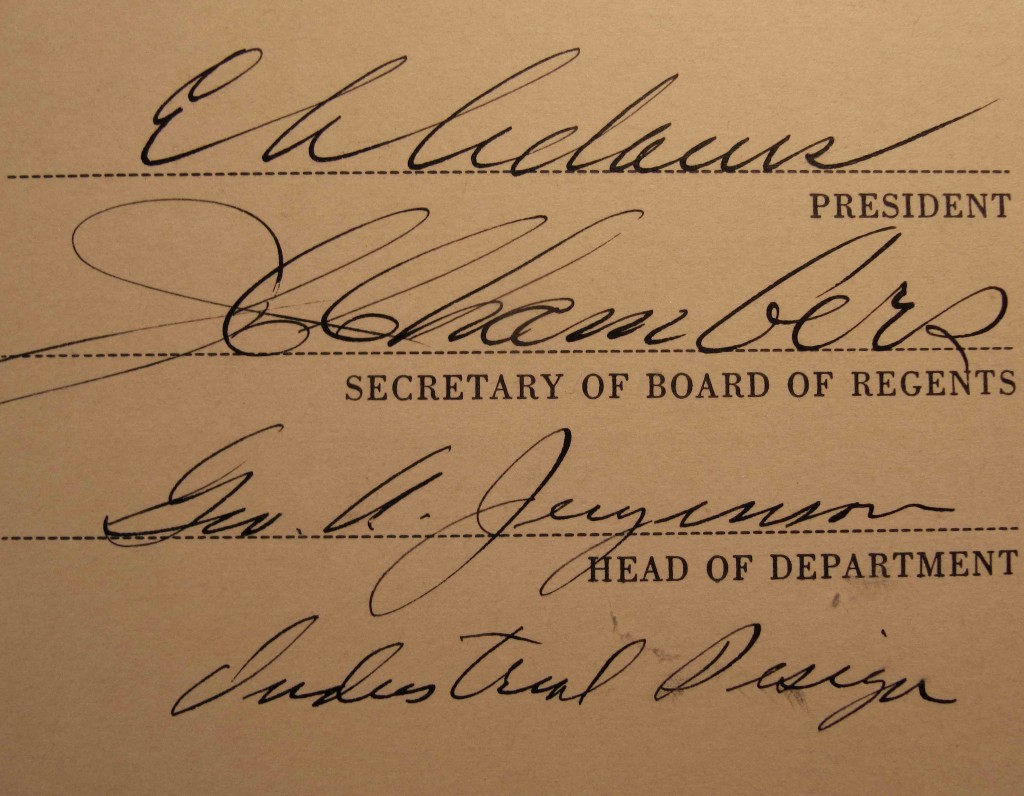 E A Adams
PRESIDENT
Chambers
SECRETARY OF BOARD OF REGENTS
Geo. A. Jergenson
HEAD OF DEPARTMENT
Industrial Design